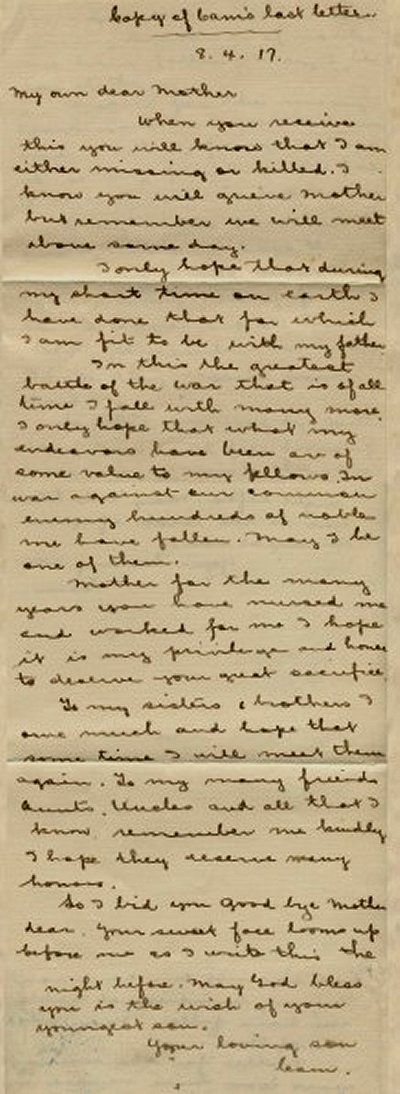 Copy of Cam's last letter.
8. 4. 17.
My own dear Mother
When you receive
this you will know that I am
either missing or killed. I
know you will grieve Mother
but remember we will meet
above some day.
I only hope that during
my short time on earth I
have done that for which
I am fit to be with my father
In this the greatest
battle of the war that is of all
time I fall with many more.
I only hope that what my
endeavors have been are of
some value to my fellows. In
war against our common
enemy hundreds of noble
me have fallen. May I be
one of them.
Mother for the many
years you have nursed me
and worked for me I hope
it is my privilege and honor
to deserve your great sacrifice.
To my sisters & brothers I
owe much and hope that
some time I will meet them
again. To my many friends
Aunts, Uncles and all that I
know, remember me kindly
I hope they reserve many
honors.
So I bid you Good bye Mother
dear. Your sweet face looms up
before me as I write this the
night before. May God bless
you is the wish of your
youngest son.
Your loving son
Cam.